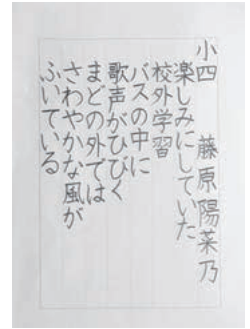 小四 藤原陽菜乃
楽しみにしていた
校外学習
バスの中に
歌声がひびく
まどの外では
さわやかな風が
ふいている